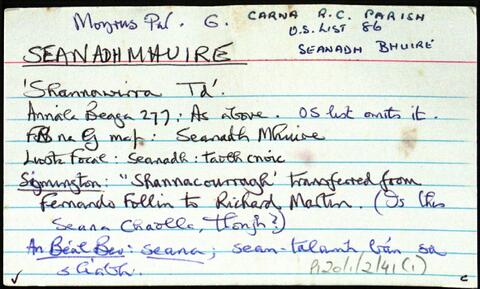 Moyrus Par. G. CARNA R.C. PARISH
O.S. LIST 86
SEANADH BHUIRE
SEANADHMHUIRE
'Shannawirra Td'.
Annála Beaga 277; As above. OS list omits it.
na G map: Seanadh Mhuire
Liosta Focal: Seanadh: taobh cnoic
Simington: "Shannacourragh" transferred from
Fernando Follin to Richard Martin. (Is this
Seana Chaolla, though?)
An Béal Beo: seana; sean-talamh bán sa
sliabh.
P120/1/2/41(1)
c